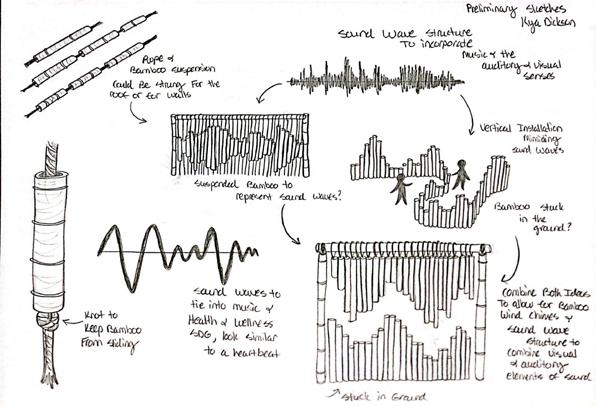 Preliminary Sketches
Kya Dickson
Sound Wave Structure
To incorporate
Music & the
auditory & visual
senses
Rope &
Bamboo suspension
Could Be strung For the
roof or for walls
Vertical Installation
Mimicing
sound waves
Suspended Bamboo to
represent sound waves?
Bamboo stuck
in the
ground?
Sound waves to
tie into music &
Health & Wellness
SDG, look similar
to a heartbeat
Knot to
Keep Bamboo
From sliding
Combine Both Ideas
To allow for Bamboo
Wind Chimes &
sound wave
structure to
combine visual
& auditory
elements of sound
Stuck in Ground